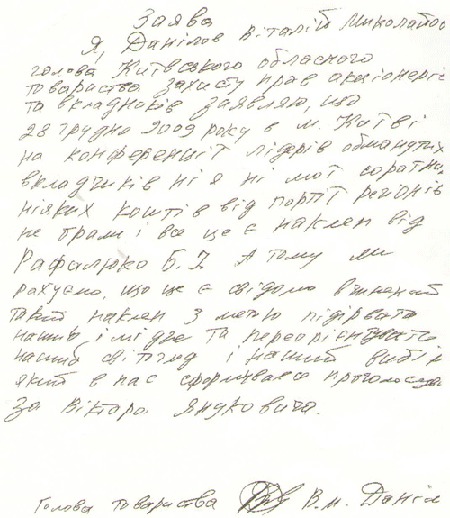 Заява
Я, Данілов Віталій Миколайо
голова Київського обласного
товариства захисту прав акціонерів
та вкладників заявляю, що
28 грудня 2009 року в м. Києві
на конференції лідерів обманутих
вкладчиків ні я ні мої соратни
ніяких коштів від партії регіонів
не брали і все це є наклеп від
Рафалюко Б. І А тому ми
рахуємо, що це є свідомо
такий наклеп з метою підірвати
нашу імідж та переорієнтувати
наший світогляд і наший вибір
який в нас сформувався проголосува
За Віктора Януковича.
Голова товариства В.М. Даніл